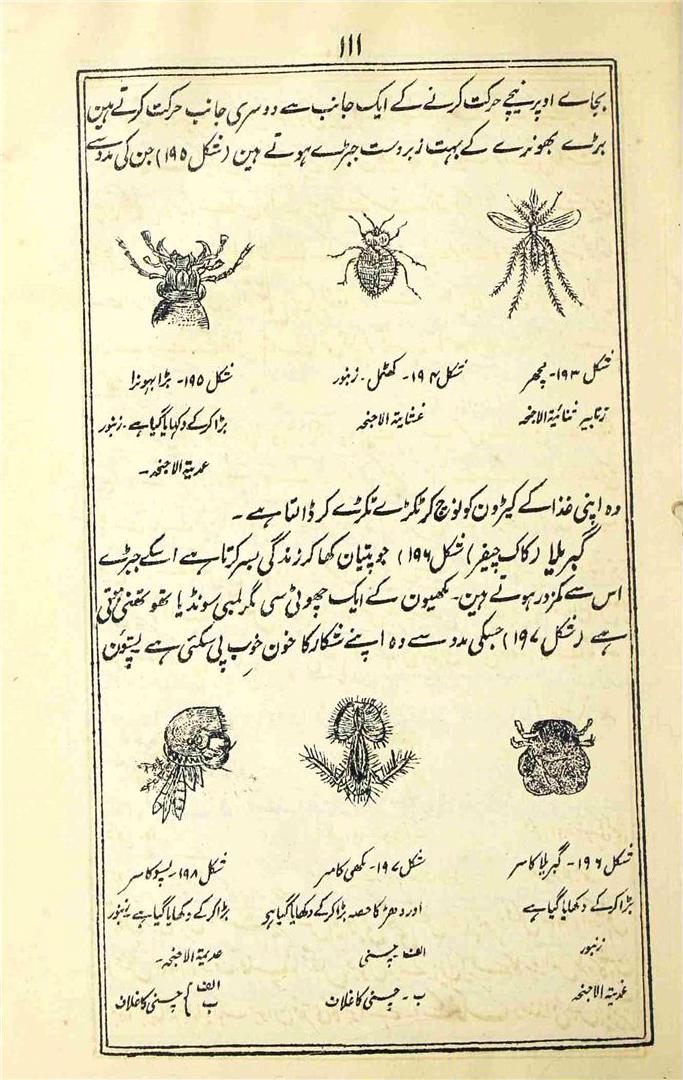 ۱۱۱
بجاے اوپر نیچے حرکت کرنے کے ایک جانب سے دوسری جانب حرکت کرتے ہین
بڑے بھونرے کے بہت زبردست جبڑے ہوتے ہین (شکل ۱۹۵) جن کی مدد سے
شکل ۱۹۳- مچھر
زنابیر ثنائیۃ الاجنحہ
شکل ۱۹۴- کھٹمل- زنبور
غشایۃ الاجنحہ
شکل ۱۹۵- بڑا بہونرا
بڑا کرکے دکہایا گیا ہے- زنبور
عدیۃ الاجنحہ-
وہ اپنی غذا کے کیڑون کو نوچ کر ٹکڑے ٹکڑے کر ڈالتا ہے-
گبریلا (کاک چیفر) (شکل ۱۹۶) جو پتیان کھا کر زندگی بسر کرتا ہے اسکے جبڑے
اس سے کمزور ہوتے ہین- مکھیون کے ایک چھوٹی سی مگر لمبی سونڈ یا تھوتھنی ہوتی
ہے (شکل ۱۹۷) جسکی مدد سے وہ اپنے شکار کا خون خوب پی سکتی ہے پسّوئن
شکل ۱۹۶- گبریلا کا سر
بڑا کرکے دکھایا گیا ہے
زنبور
غمدیۃ الاجنحہ
شکل ۱۹۷- مکھی کا سر
اور دھڑ کا حصہ بڑا کرکے دکھایا گیا ہو
الف- چسنی
ب- چسنی کا غلاف
شکل ۱۹۸- پسو کا سر
بڑا کرکے دکھایا گیا ہے زنبور
عدیمۃ الاجنحہ-
الف ب } چسنی کا غلاف